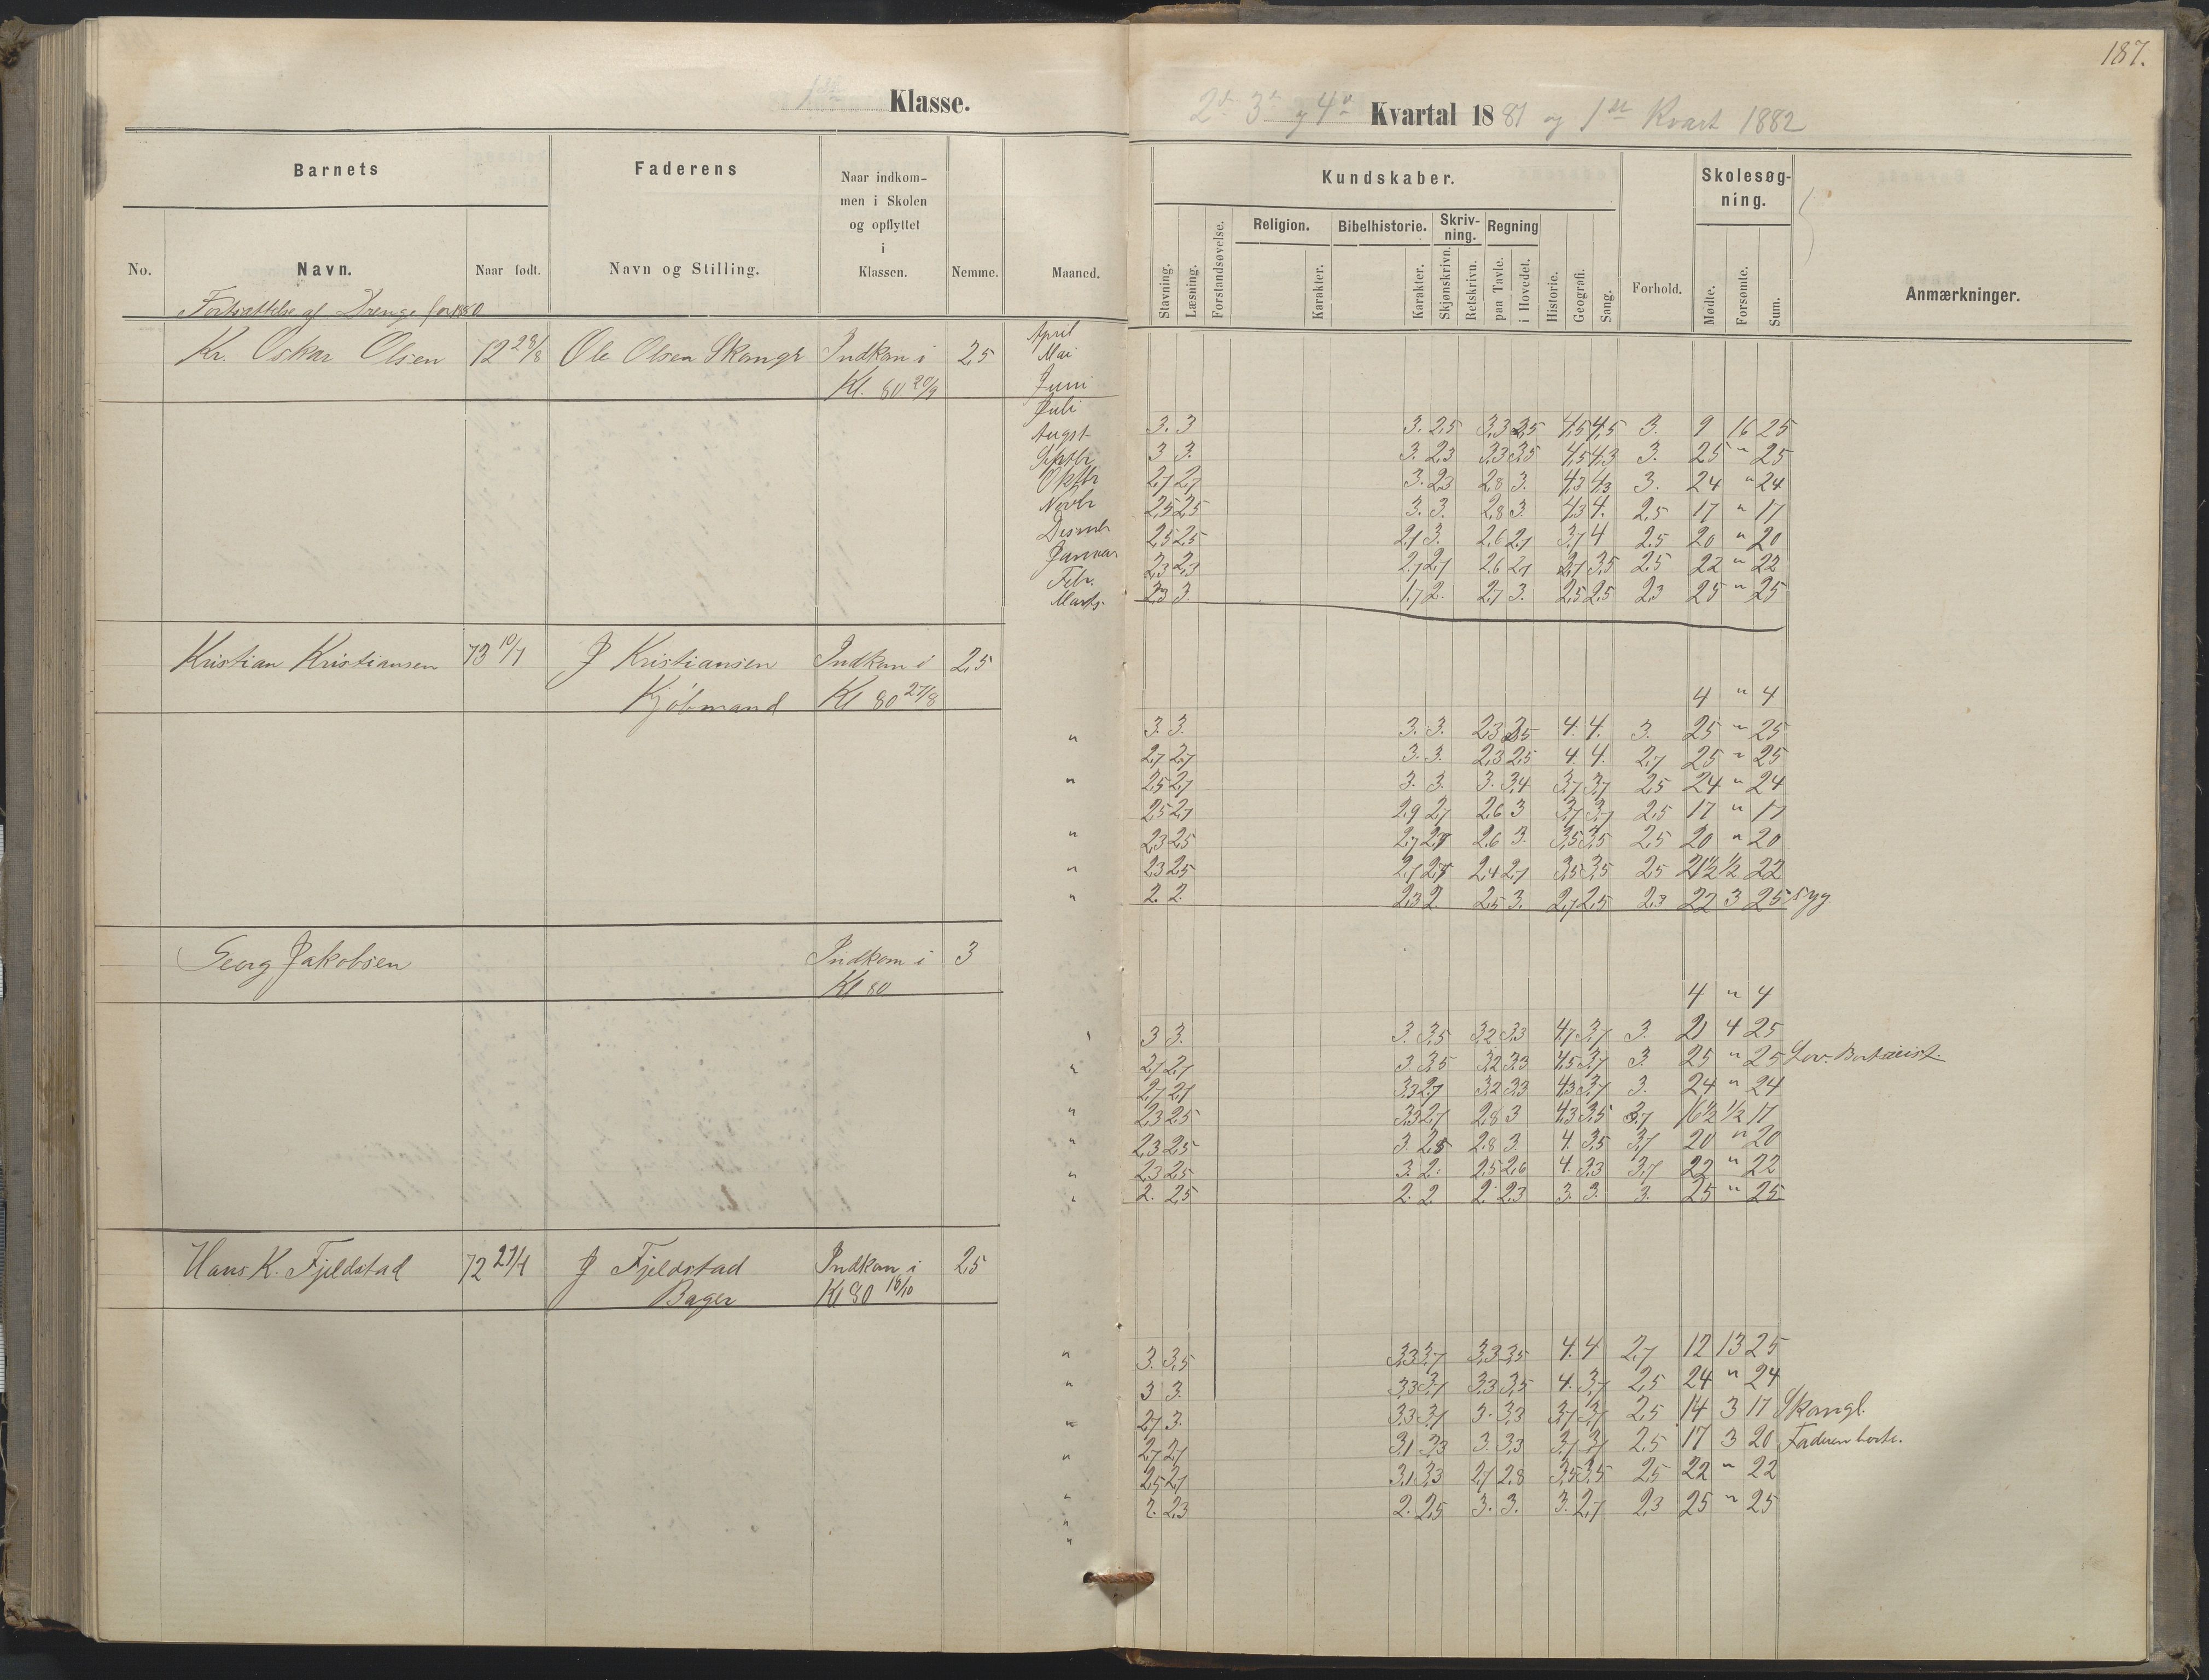 187.
1ste Klasse.
2d 3d og 4d Kvartal 1881 og 1ste Kvart 1882
Barnets
Faderens
Naar indkommen i Skolen og opflyttet i Klassen.
Nemme.
Maaned.
No.
Navn.
Naar født.
Navn og Stilling.
Kundskaber.
Skolesøgning.
Religion.
Bibelhistorie.
Skrivning.
Regning
Stavning.
Læsning.
Forstandsøvelse.
Karakter.
Karakter.
Skjønskrivn.
Retskrivn.
paa Tavle.
i Hovedet.
Historie.
Geografi.
Sang.
Forhold.
Mødte.
Forsømte.
Sum.
Anmærkninger.
Fortsættelse af Drenge for 1880
Kr. Oskar Olsen 72 28/8 Ole Olsen Indkom i 2,5
Kl. 80 20/9
April
Mai
Juni
Juli
Augst
Septbr
Oktbr
Novbr
Desembr
Januar
Febr.
Marts
3. 3 3. 2,5 3,3 3,5 4,5 4,5 3. 9 16 25
3 3. 3. 2,3 3,3 3,5 4,5 4,3 3. 25 " 25
2,7 2,7 3. 2,3 2,8 3. 4,3 4,3 3. 24 " 24
2,5 2,5 3. 3. 2,8 3. 4,3 4. 2,5 17 " 17
2,5 2,5 2,7 3. 2,6 2,7 3,7 4 2,5 20 " 20
2,3 2,3 2,7 2,7 2,6 2,7 3,7 3,5 2,5 22 " 22
2,3 3. 1,7 2. 2,7 3. 2,5 2,5 2,3 25 " 25
Kristian Kristiansen 73 10/1 J Kristiansen Indkom i 2,5
Kjøbmand Kl 80 27/8
4 " 4
3. 3. 3. 3. 2,3 2,5 4. 4. 3. 25 " 25
2,7 2,7 3. 3. 2,3 2,5 4. 4. 2,7 25 " 25
2,5 2,7 3. 3. 3. 3,4 3,7 3,7 2,5 24 " 24
2,5 2,7 2,9 2,7 2,6 3 3,7 3,7 2,5 17 " 17
2,3 2,5 2,7 2,7 2,6 3. 3,5 3,5 2,5 20 " 20
2,3 2,5 2,7 2,7 2,4 2,7 3,5 3,5 2,5 21½ ½ 22
2. 2. 2,3 2. 2,5 3. 2,7 2,5 2,3 22 3 25 syg
Georg Jakobsen Indkom i 3
Kl 80
4 " 4
3 3. 3. 3,5 3,2 3,3 4,7 3,7 3. 21 4 25
2,7 2,7 3. 3,5 3,2 3,3 4,5 3,7 3. 25 " 25
2,7 2,7 3,3 2,7 3,2 3,3 4,3 3,7 3. 24 " 24
2,3 2,5 3,3 2,7 2,8 3 4,3 3,5 3,7 16½ ½ 17
2,3 2,5 3. 2,5 2,8 3. 4. 3,5 3,7 20 " 20
2,3 2,5 3. 2. 2,5 2,6 4. 3,3 3,7 22 " 22
2. 2,5 2. 2 2. 2,3 3. 3. 3. 25 " 25
Hans K. Fjeldstad 72 27/4 J Fjeldstad Indkom i 2,5
Bager Kl 80 18/10
3. 3,5 3,3 3,7 3,3 3,5 4. 4 2,7 12 13 25
3 3. 3,3 3,7 3,3 3,5 4. 3,7 2,5 24 " 24
2,7 3. 3,3 3,7 3. 3,3 3,7 3,7 2,5 14 3 17 Skougl.
2,7 2,7 3,1 3,3 3. 3,3 3,7 3,7 2,5 17 3 20 Faderen borte.
2,5 2,7 3,1 3,3 2,7 2,8 3,5 3,5 2,5 22 " 22
2. 2,3 2. 2,5 3. 3. 3. 2,7 2,3 25 " 25